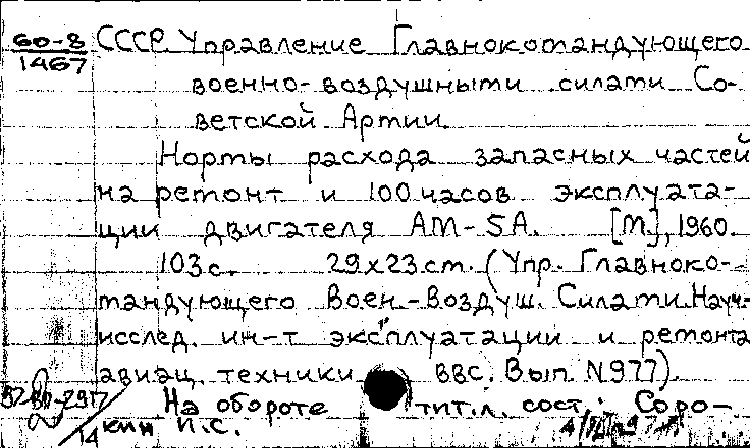 60-8 СССР. Управление Главнокомандующего
1467
военно-воздушными силами Со-
ветской Армии.
Нормы расхода запасных частей
на ремонт и 100 часов эксплуата-
ции двигателя АМ-5А. [М.], 1960.
103 с. 29х23 см. (Упр. Главноко-
мандующего Воен.-Воздуш. Силами. Науч.-
исслед. ин-т эксплуатации и ремонта
авиац. техники ВВС. Вып. N977).
На обороте тит. л. сост.: Соро-
кин П.С.
14